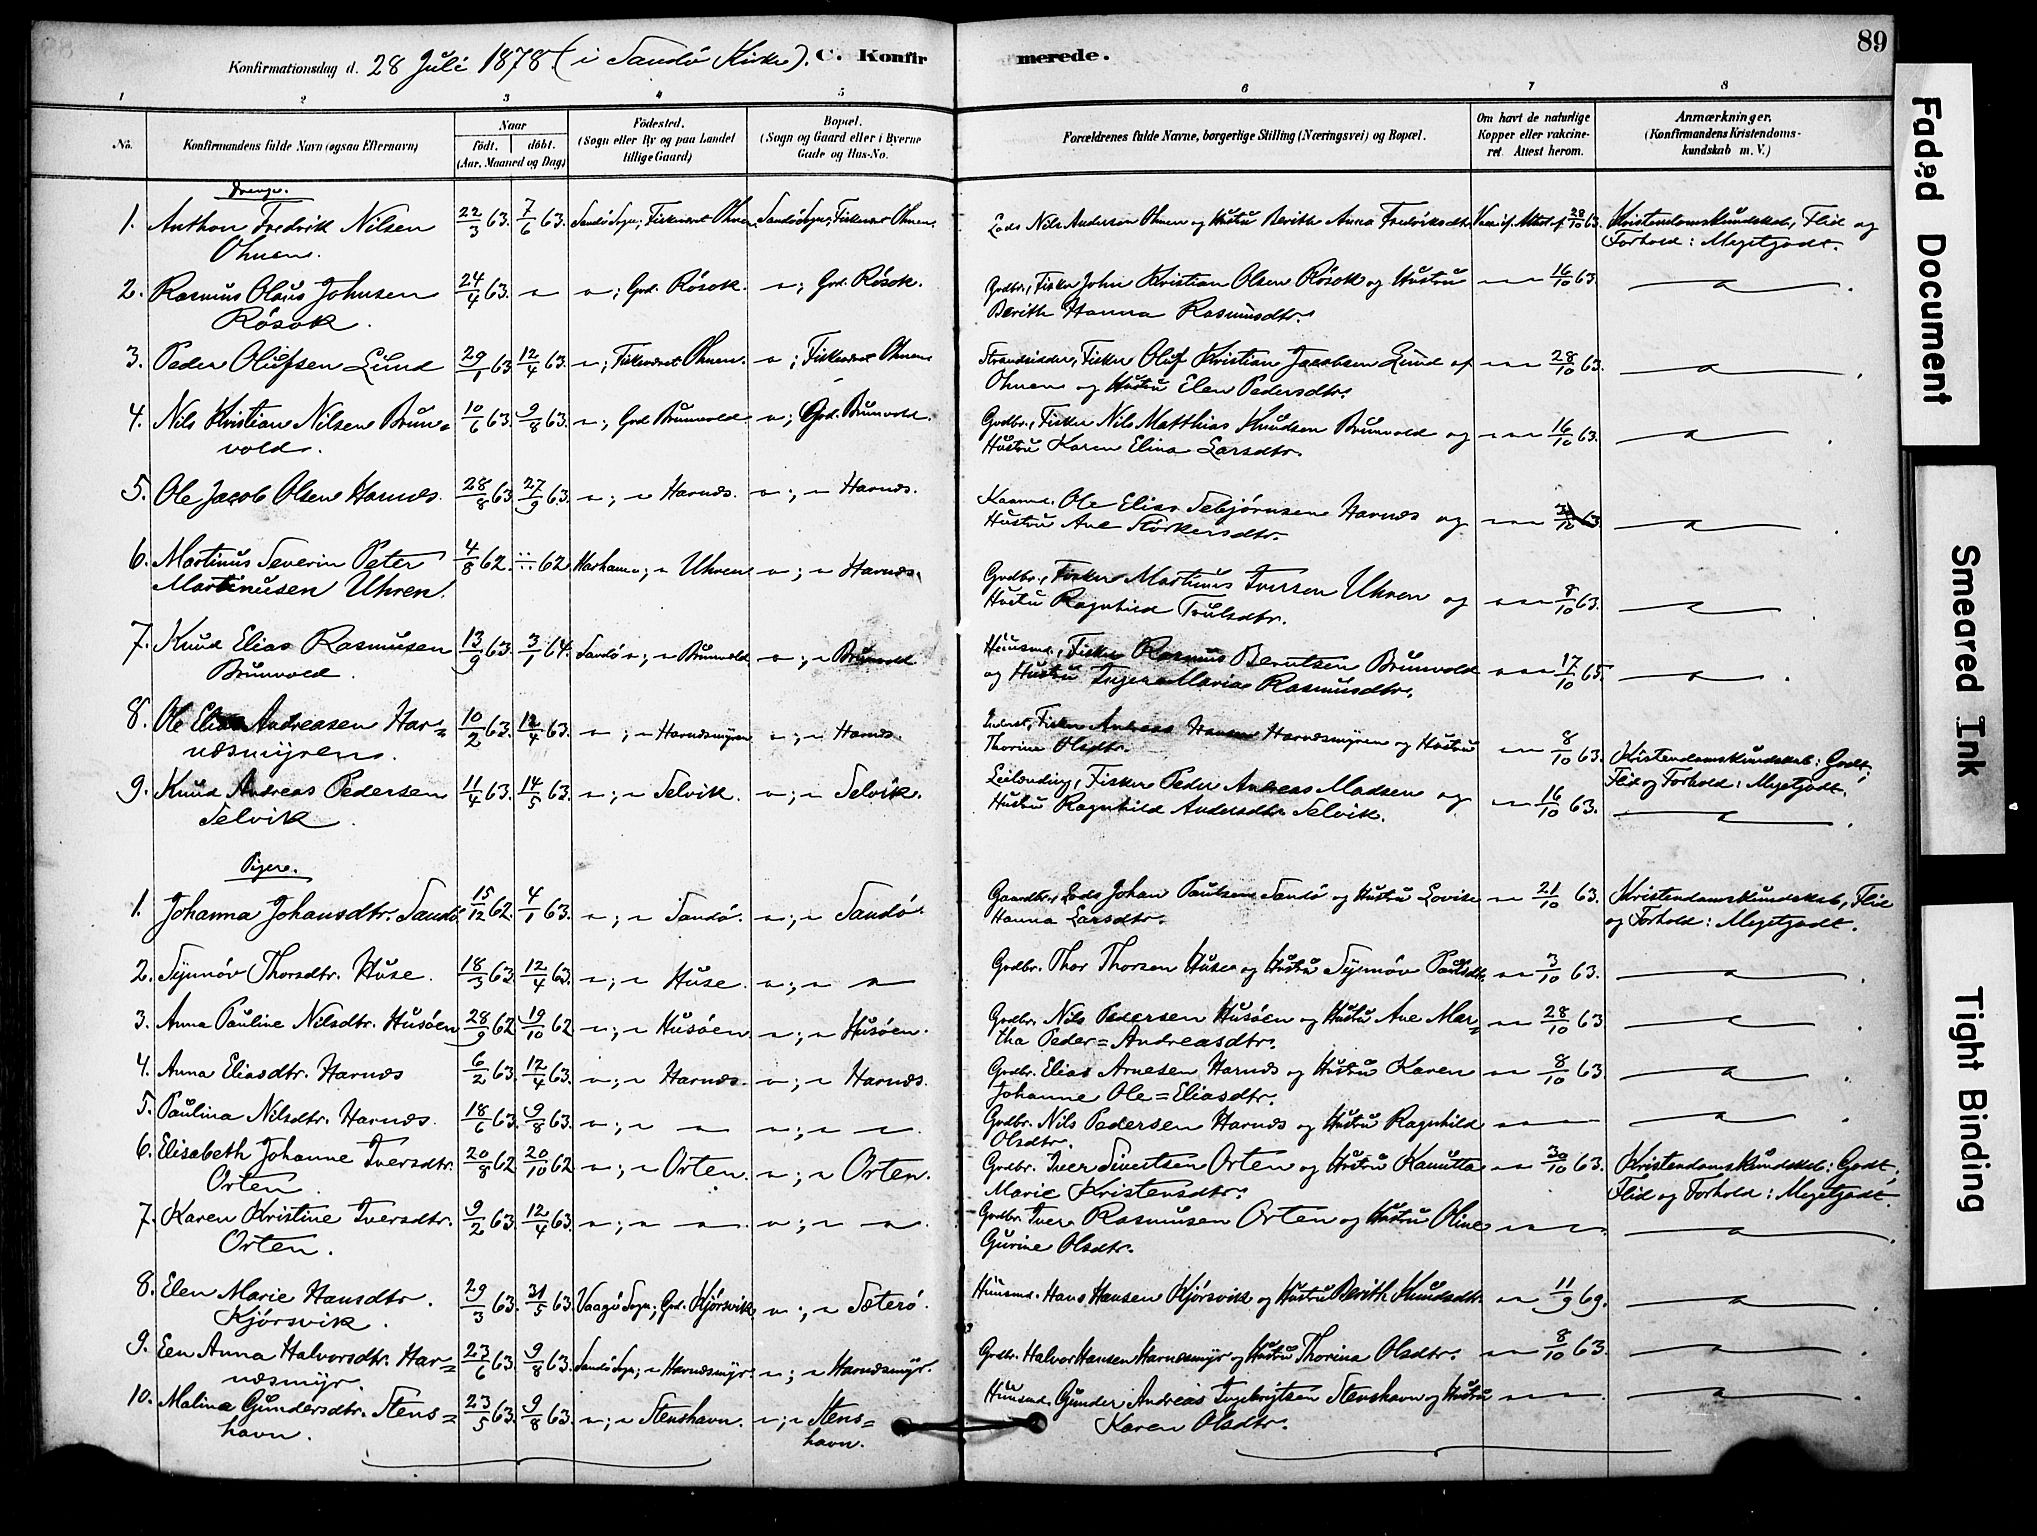 89
Konfirmationsdag d. 28 Juli 1878. (i Sandö Kirke). C. Konfirmerede.
1 2 3 4 5 6 7 8
No. Konfirmandens fulde Navn (ogsaa Efternavn) Naar födt. döbt. (Aar, Maaned og Dag) Födested. (Sogn eller By og paa Landet tillige Gaard) Bopæl. (Sogn og Gaard eller i Byerne Gade og Hus-No. Forældrenes fulde Navne, borgerlige Stilling (Næringsvei) og Bopæl. Om havt de naturlige Kopper eller vakcineret. Attest herom. Anmærkninger. (Konfirmandens Kristendomskundskab m. V.)
Drenge.
1. Anthon Fredrik Nilsen 22/3 63. 7/6 63. Sandö Sogn; Fiskeværet Ohnen. Sandö Sogn; Fiskeværet Ohnen. Lods Nils Anderson Ohnen og Hustru Berith Anna Fredriksdtr. 28/10 63. Kristendomskundskab, Flid og
Ohnen. Forhold: Megetgodt.
2. Rasmus Olaus Johnsen 24/4 63. " "; Grd. Rösok. "; Grd. Rösok. Grdbr., Fisker John Kristian Olsen Rösok og Hustru " " 16/10 63. "
Rösok. Berith Hanna Rasmusdtr.
3. Peder Olufsen Lund 29/1 63. 12/4 63. "; Fiskeværet Ohnen. "; Fiskeværet Ohnen. Strandsidder, Fisker Oluf Kristian Jacobsen Lund af " " 28/10 63. "
Ohnen og Hustru Elen Pedersdtr.
4. Nils Kristian Nilsen Brun= 10/6 63. 9/8 63. "; Grd Brunvold "; Grd. Brunvold. Grdbr., Fisker Nils Matthias Knudsen Brunvold og " " 16/10 63. "
vold. Hustru Karen Elina Larsdtr.
5. Ole Jacob Olsen Harnæs. 28/8 63. 27/9 63. "; " Harnæs. "; " Harnæs. Ole Elias Sebjörnsen Harnæs og " " 63. "
Hustru Ane Störkersdtr.
6. Martinus Severin Peter 4/8 62. 62. Harham "; " Uhren "; " Harnæs. Grdbr., Fisker Martinus Iversen Uhren og " " 8/10 63. "
Martinusen Uhren. Hustru Ragnhild Trulsdtr.
7. Knud Elias Rasmusen 13/9 63. 3/1 64. Sandö "; " Brunvold "; " Brunvold Huusmd., Fisker Rasmus Berntsen Brunvold " " 17/10 65. "
Brunvold. og Hustru Inger Maria Rasmusdtr.
8. Ole Elias Andreasen Har= 10/2 63. 12/4 63. "; " Harnæsmyren "; " Harnæs. Inderst, Fisker Andreas Hansen Harnæsmyren og Hustru " 8/10 63. Kristendomskundskab: Godt;
næsmyren. Thorine Olsdtr. Flid og Forhold: Megetgodt.
9. Knud Andreas Pedersen 11/4 63. 14/5 63. "; " Selvik. "; " Selvik. Leilænding, Fisker Peder Andreas Madsen og " 16/10 63. "
Selvik. Hustru Ragnhild Andersdtr. Selvik.
Pigere.
1. Johanna Johansdtr. Sandö. 15/12 62. 4/1 63. "; " Sandö. "; " Sandö. Gaardbr., Lods Johan Paulsen Sandö og Hustru Lovise " 21/10 63. Kristendomskundskab, Flid
Hanna Larsdtr. og Forhold: Megetgodt.
2. Synnöv Thorsdtr. Huse. 18/3 63. 12/4 63. "; " Huse. "; " " Grdbr. Thor Thorsen Huse og Hustru Synnöv Paulsdtr. " 3/10 63. "
3. Anna Pauline Nilsdtr. Husöen 28/9 62 19/10 62 "; " Husöen "; " Husöen. Grdbr. Nils Pedersen Husöen og Hustru Ane Mar= " 28/10 63 "
tha Peder=Andreasdtr.
4. Anna Eliasdtr. Harnæs 6/2 63. 12/4 63. "; " Harnæs. "; " Harnæs. Grdbr. Elias Arnesen Harnæs og Hustru Karen " 8/10 63. "
Johanne Ole=Eliasdtr.
5. Paulina Nilsdtr. Harnæs. 18/6 63. 9/8 63. "; " " "; " " Grdbr. Nils Pedersen Harnæs og Hustru Ragnhild " " " "
Olsdtr.
6. Elisabeth Johanne Iversdtr. 20/8 62 20/10 62 "; " Orten. "; " Orten. Grdbr. Iver Sivertsen Orten og Hustru Kanutta " 30/10 63. Kristendomskundskab: Godt;
Orten. Marie Kristensdtr. Flid og Forhold: Megetgodt.
7. Karen Kristine Iversdtr. 9/2 63. 12/4 63. "; " " "; " " Grdbr. Iver Rasmusen Orten og Hustru Oline " " " "
Orten. Gurine Olsdtr.
8. Elen Marie Hansdtr. 29/3 63. 31/5 63. Vaagö Sogn; Grd. Kjörsvik. "; " Sæterö. Huusmd. Hans Hansen Kjörsvik og Hustru Berith Knudsdtr. " 11/9 69. "
Kjörsvik.
9. Een Anna Halvorsdtr. Har= 23/6 63. 9/8 63. Sandö Sogn; " Harnæsmyr. "; " Harnæsmyr. Grdbr. Halvor Hansen Harnæsmyr og Hustru Thorina Olsdtr. " 8/10 63. "
næsmyr.
10. Malina Gundersdtr. Stens= 23/5 63. 9/8 63. "; " Stenshavn. "; " Stens= Huusmd. Gunder Andreas Ingebrigtsen Stenshavn og Hustru " " " "
havn. havn. Karen Olsdtr.
Faded Document
Smeared Ink
Tight Binding